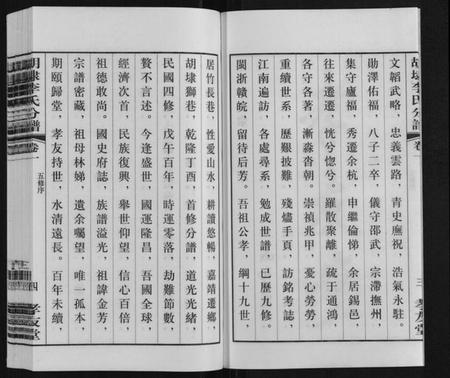 胡埭李氏分譜
卷一
文韜武略，忠義雲路，青史廡祝，浩氣永駐。
勛澤佑福，八子二卒，儀守邵武，宗滯撫州，
集守廬福，秀遷余杭，申繼倫悌，余居錫邑，
往來遷遷，恍兮惚兮。羅散聚離，疏于通鴻，
各守各著，漸淼各朝。崇禎兆甲，憂心勞勞，
重續世系，歷艱披難，殘燼手頁，訪銘考誌，
江南遍訪，各處尋系，勉成世譜，已歷九修。
閩浙贛皖，留待后芳。吾祖公孝，綱十九世，
三 孝友堂
居竹長巷，性愛山水，耕讀悠暢，嘉靖遷鄉，
胡埭獅巷，乾隆丁酉，首修分譜，道光光緒，
民國四修，戊午百年，時運零落，劫難節數，
贅不言述。今逢盛世，國運隆昌，吾國全球，
經濟次首，民族復興，舉世仰望，信心百倍，
祖德敢尚。國史府誌，族譜溢光，祖諱金芳，
宗譜密藏，祖母林娣，遺余囑望，唯一孤本，
期頤歸堂，孝友持世，水清遠長。百年未續，
胡埭李氏分譜
卷一
五修序
四 孝友堂